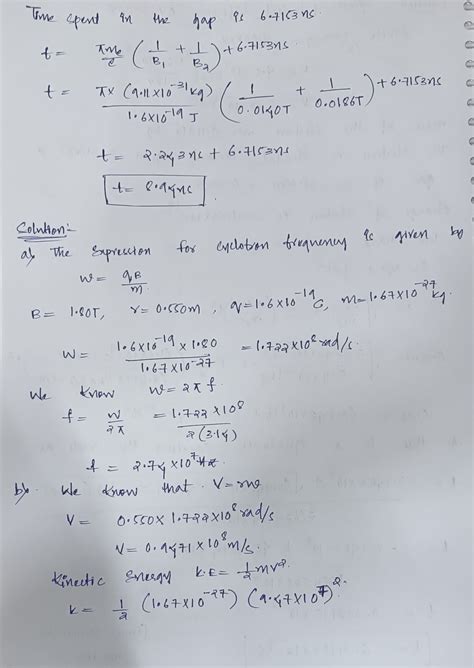 Time spent in the gap is 6.7153ns
t = πme/e (1/B₁ + 1/B₂) + 6.7153ns
t = π× (9.11×10⁻³¹kg)/1.6×10⁻¹⁹ J (1/0.0140T + 1/0.0186T) + 6.7153ns
t = 2.243ns + 6.7153ns
t = 8.94ns
Solution:-
a) The expression for cyclotron frequency is given by
W = qB/m
B = 1.80T, r = 0.550m, q = 1.6×10⁻¹⁹ C, m = 1.67×10⁻²⁷ kg.
W = 1.6×10⁻¹⁹ × 1.80/1.67×10⁻²⁷ = 1.722×10⁸ rad/s.
We know W = 2πf.
f = W/2π = 1.722×10⁸/2(3.14)
f = 2.74×10⁷ Hz.
b) We know that V = rω
V = 0.550×1.722×10⁸ rad/s
V = 0.9471×10⁸ m/s.
Kinetic Energy K.E = ½mv².
K = ½ (1.67×10⁻²⁷) (9.47×10⁷)².